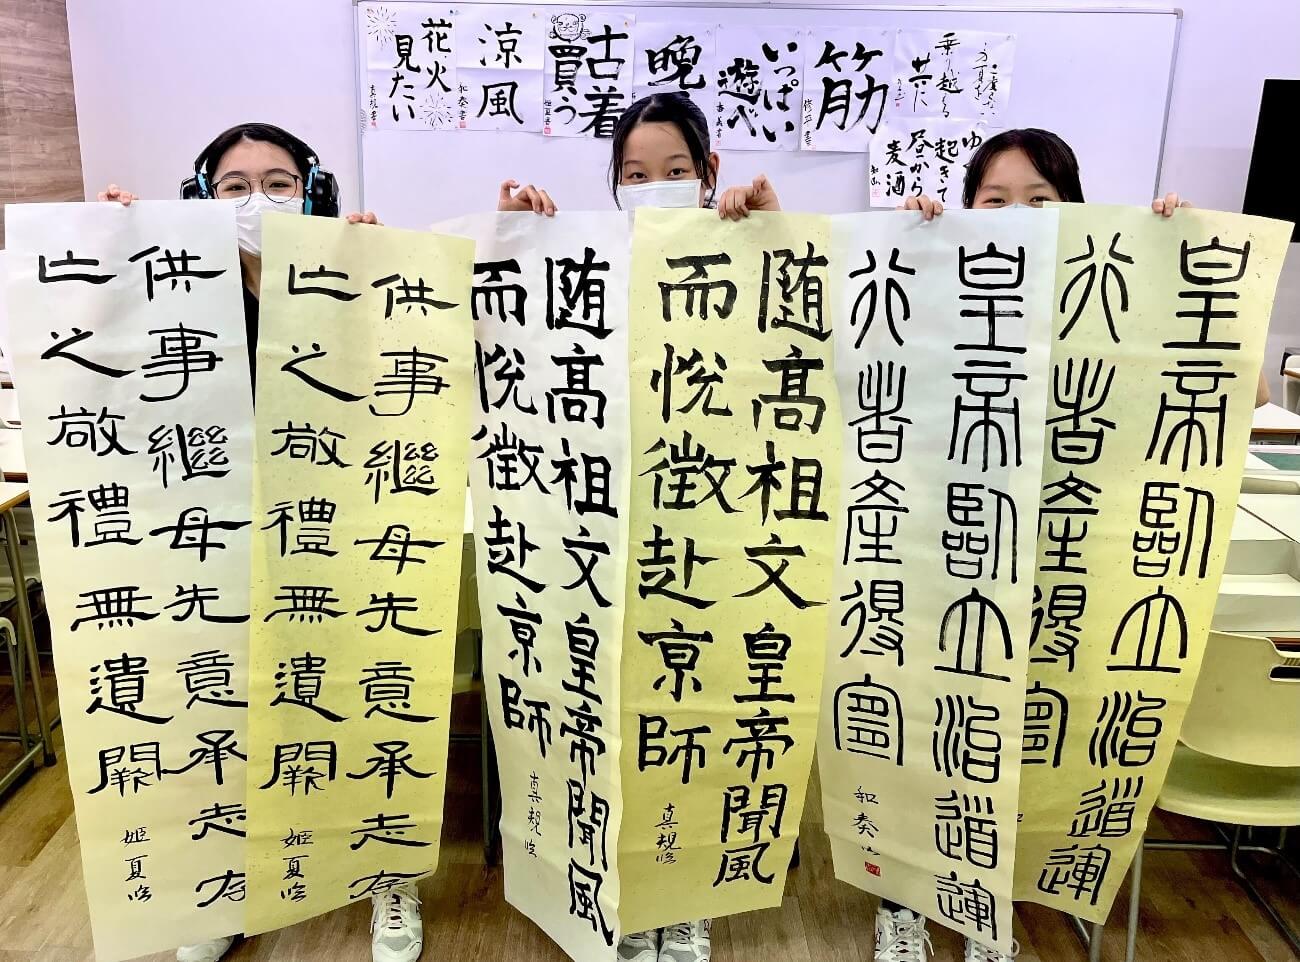 花火
見たい
真規書
涼風
和奏書
古着
買う
姫夏書
晩
いっぱい
遊べ
筋
修平書
乗り越える
共に
起きて
昼から
麦酒
供事繼母先意承志存
亡之敬禮無遺闕
姫夏臨
供事繼母先意承志存
亡之敬禮無遺闕
姫夏臨
随髙祖文皇帝聞風
而悦徴赴京師
真規臨
随髙祖文皇帝聞風
而悦徴赴京師
真規臨
皇帝臨立治道運
行者産得宜
和奏臨
皇帝臨立治道運
行者産得宜